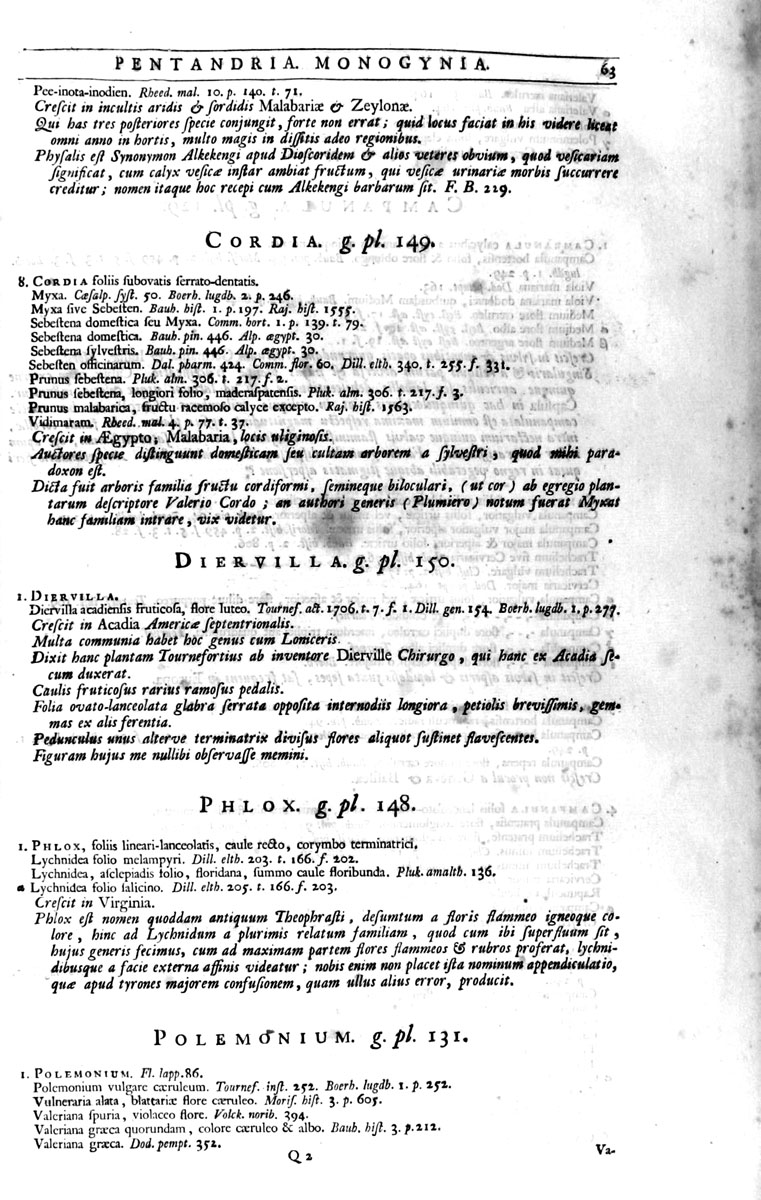 PENTANDRIA. MONOGYNIA. 63
Pee-inota-inodien. Rheed. mal. 10. p. 140. t. 71.
Creſcit in incultis aridis & ſordidis Malabariæ & Zeylonæ.
Qui has tres poſteriores ſpecie conjungit, forte non errat; quid locus faciat in his videre liceat
omni anno in hortis, multo magis in diſſitis adeo regionibus.
Phyſalis eſt Synonymon Alkekengi apud Dioſcoridem & alios veteres obvium, quod veſicariam
ſignificat, cum calyx veſicæ inſtar ambiat fructum, qui veſicæ urinariæ morbis ſuccurrere
creditur; nomen itaque hoc recepi cum Alkekengi barbarum ſit. F. B. 229.
CORDIA. g. pl. 149.
8. CORDIA foliis ſubovatis ſerrato-dentatis.
Myxa. Cæſalp. ſyſt. 50. Boerh. lugdb. 2. p. 246.
Myxa ſive Sebeſten. Bauh. hiſt. 1. p. 197. Raj. hiſt. 1555.
Sebeſtena domeſtica ſeu Myxa. Comm. hort. 1. p. 139. t. 79.
Sebeſtena domeſtica. Bauh. pin. 446. Alp. ægypt. 30.
Sebeſtena ſylveſtris. Bauh. pin. 446. Alp. ægypt. 30.
Sebeſten officinarum. Dal. pharm. 424. Comm. flor. 60. Dill. elth. 340. t. 255. f. 331.
Prunus ſebeſtena. Pluk. alm. 306. t. 217. f. 2.
Prunus ſebeſtena, longiori folio, maderaſpatenſis. Pluk. alm. 306. t. 217. f. 3.
Prunus malabarica, fructu racemoſo calyce excepto. Raj. hiſt. 1563.
Vidimaram. Rheed. mal. 4. p. 77. t. 37.
Creſcit in Ægypto, Malabaria, locis uliginoſis.
Auctores ſpecie diſtinguunt domeſticam ſeu cultam arborem a ſylveſtri, quod mihi para-
doxon eſt.
Dicta fuit arboris familia fructu cordiformi, ſemineque biloculari, (ut cor) ab egregio plan-
tarum deſcriptore Valerio Cordo; an authori generis (Plumiero) notum fuerat Myxat
hanc familiam intrare, vix videtur.
DIERVILLA. g. pl. 150.
1. DIERVILLA.
Diervilla acadienſis fruticoſa, flore luteo. Tournef. act. 1706. t. 7. f. 1. Dill. gen. 154. Boerh. lugdb. 1. p. 277.
Creſcit in Acadia Americæ ſeptentrionalis.
Multa communia habet hoc genus cum Loniceris.
Dixit hanc plantam Tournefortius ab inventore Dierville Chirurgo, qui hanc ex Acadia ſe-
cum duxerat.
Caulis fruticoſus rarius ramoſus pedalis.
Folia ovato-lanceolata glabra ſerrata oppoſita internodiis longiora, petiolis breviſſimis, gem-
mas ex alis ferentia.
Pedunculus unus alterve terminatrix diviſus flores aliquot ſuſtinet flaveſcentes.
Figuram hujus me nullibi obſervaſſe memini.
PHLOX. g. pl. 148.
1. PHLOX, foliis lineari-lanceolatis, caule recto, corymbo terminatrici.
Lychnidea folio melampyri. Dill. elth. 203. t. 166. f. 202.
Lychnidea, aſclepiadis folio, floridana, ſummo caule floribunda. Pluk. amalth. 136.
Lychnidea folio ſalicino. Dill. elth. 205. t. 166. f. 203.
Creſcit in Virginia.
Phlox eſt nomen quoddam antiquum Theophraſti, deſumtum a floris flammeo igneoque co-
lore, hinc ad Lychnidum a plurimis relatum familiam, quod cum ibi ſuperfluum ſit,
hujus generis fecimus, cum ad maximam partem flores flammeos & rubros proferat, lychni-
dibusque a facie externa affinis videatur; nobis enim non placet iſta nominum appendiculatio,
quæ apud tyrones majorem confuſionem, quam ullus alius error, producit.
POLEMONIUM. g. pl. 131.
1. POLEMONIUM. Fl. lapp. 86.
Polemonium vulgare cæruleum. Tournef. inſt. 252. Boerh. lugdb. 1. p. 252.
Vulneraria alata, blattariæ flore cæruleo. Moriſ. hiſt. 3. p. 605.
Valeriana ſpuria, violaceo flore. Volck. norib. 394.
Valeriana græca quorundam, colore cæruleo & albo. Bauh. hiſt. 3. p. 212.
Valeriana græca. Dod. pempt. 352.
Q 2 Va-